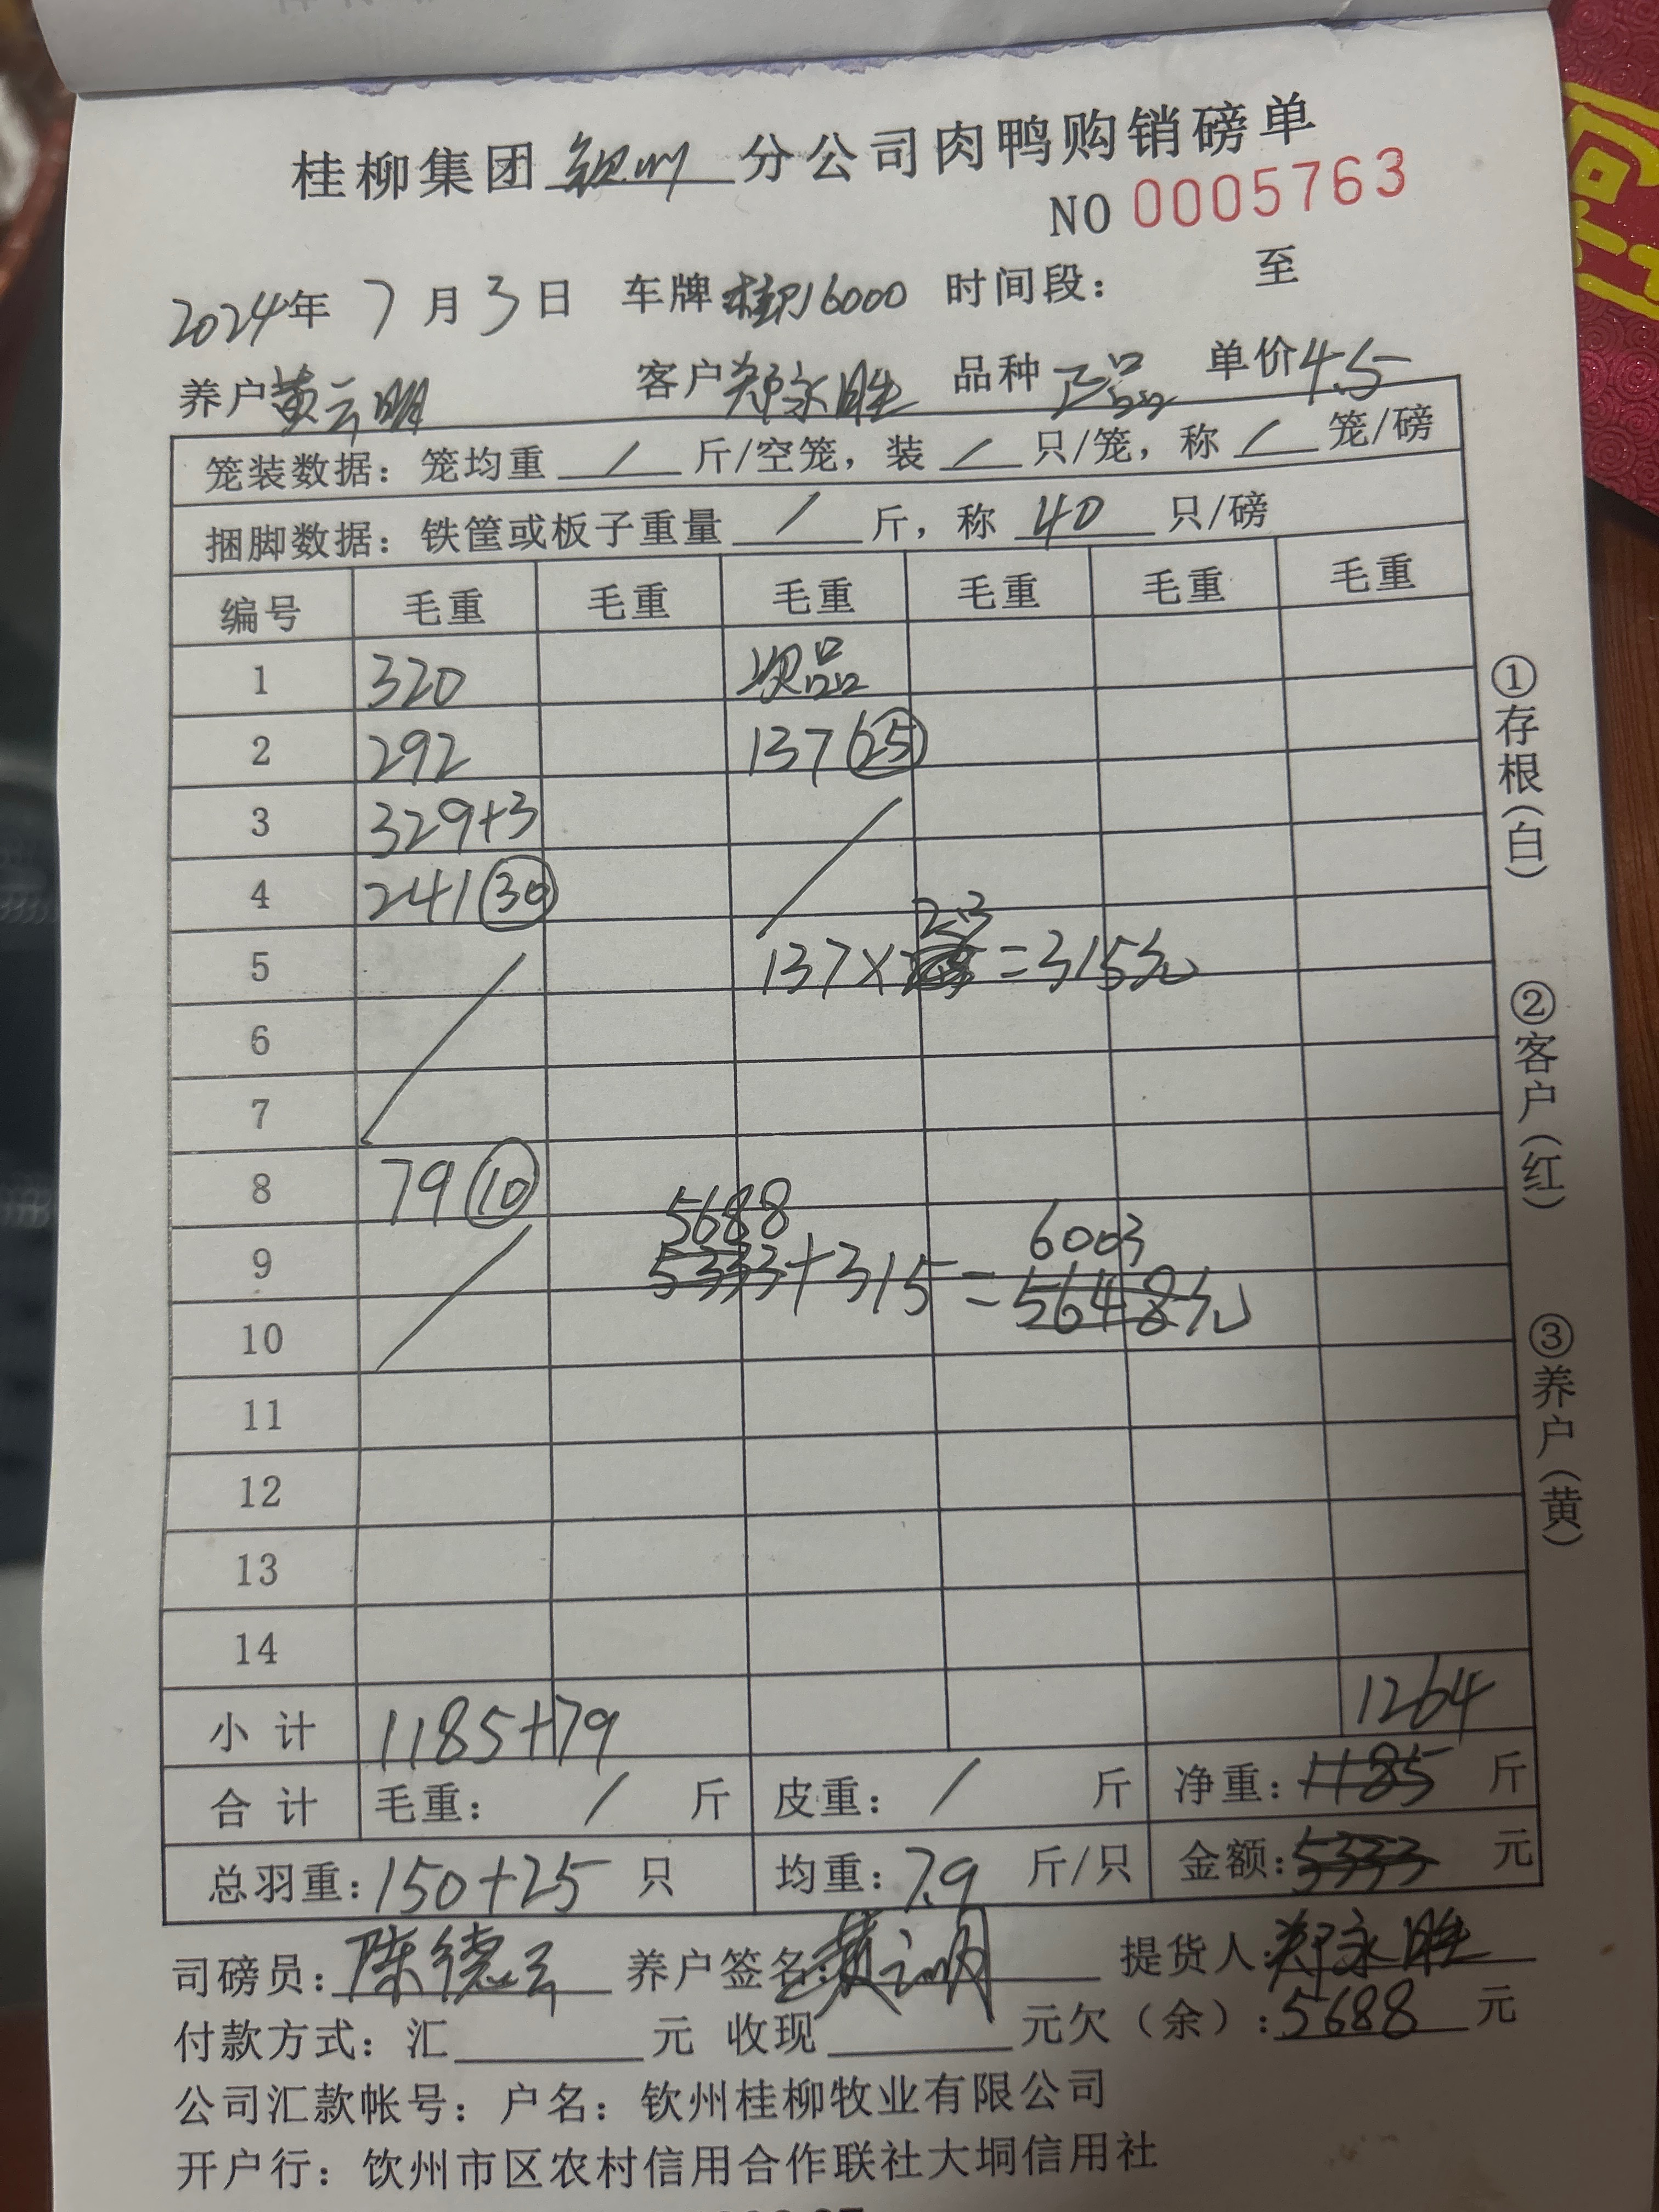 桂柳集团 钦州 分公司肉鸭购销磅单
NO 0005763
2024年 7月 3日 车牌 桂 16000 时间段： 至
养户 黄云明 客户 郑永胜 品种 正品 单价 4.5
笼装数据：笼均重 / 斤/空笼，装 / 只/笼，称 / 笼/磅
捆脚数据：铁筐或板子重量 / 斤，称 40 只/磅
编号 毛重 毛重 毛重 毛重 毛重 毛重
1 320 次品
2 292 137 25
3 329+3
4 241 30
2.3
5 137× =315元
6
7
8 79 10
5688 6003
9 5333+315=5648元
10
11
12
13
14
1264
小计 1185+79
合计 毛重： / 斤 皮重： / 斤 净重：1185 斤
总羽重：150+25 只 均重：7.9 斤/只 金额：5333 元
司磅员：陈德云 养户签名：黄云明 提货人：郑永胜
付款方式：汇 元 收现 元欠（余）：5688 元
公司汇款帐号：户名：钦州桂柳牧业有限公司
开户行：钦州市区农村信用合作联社大垌信用社
①存根（白）
②客户（红）
③养户（黄）